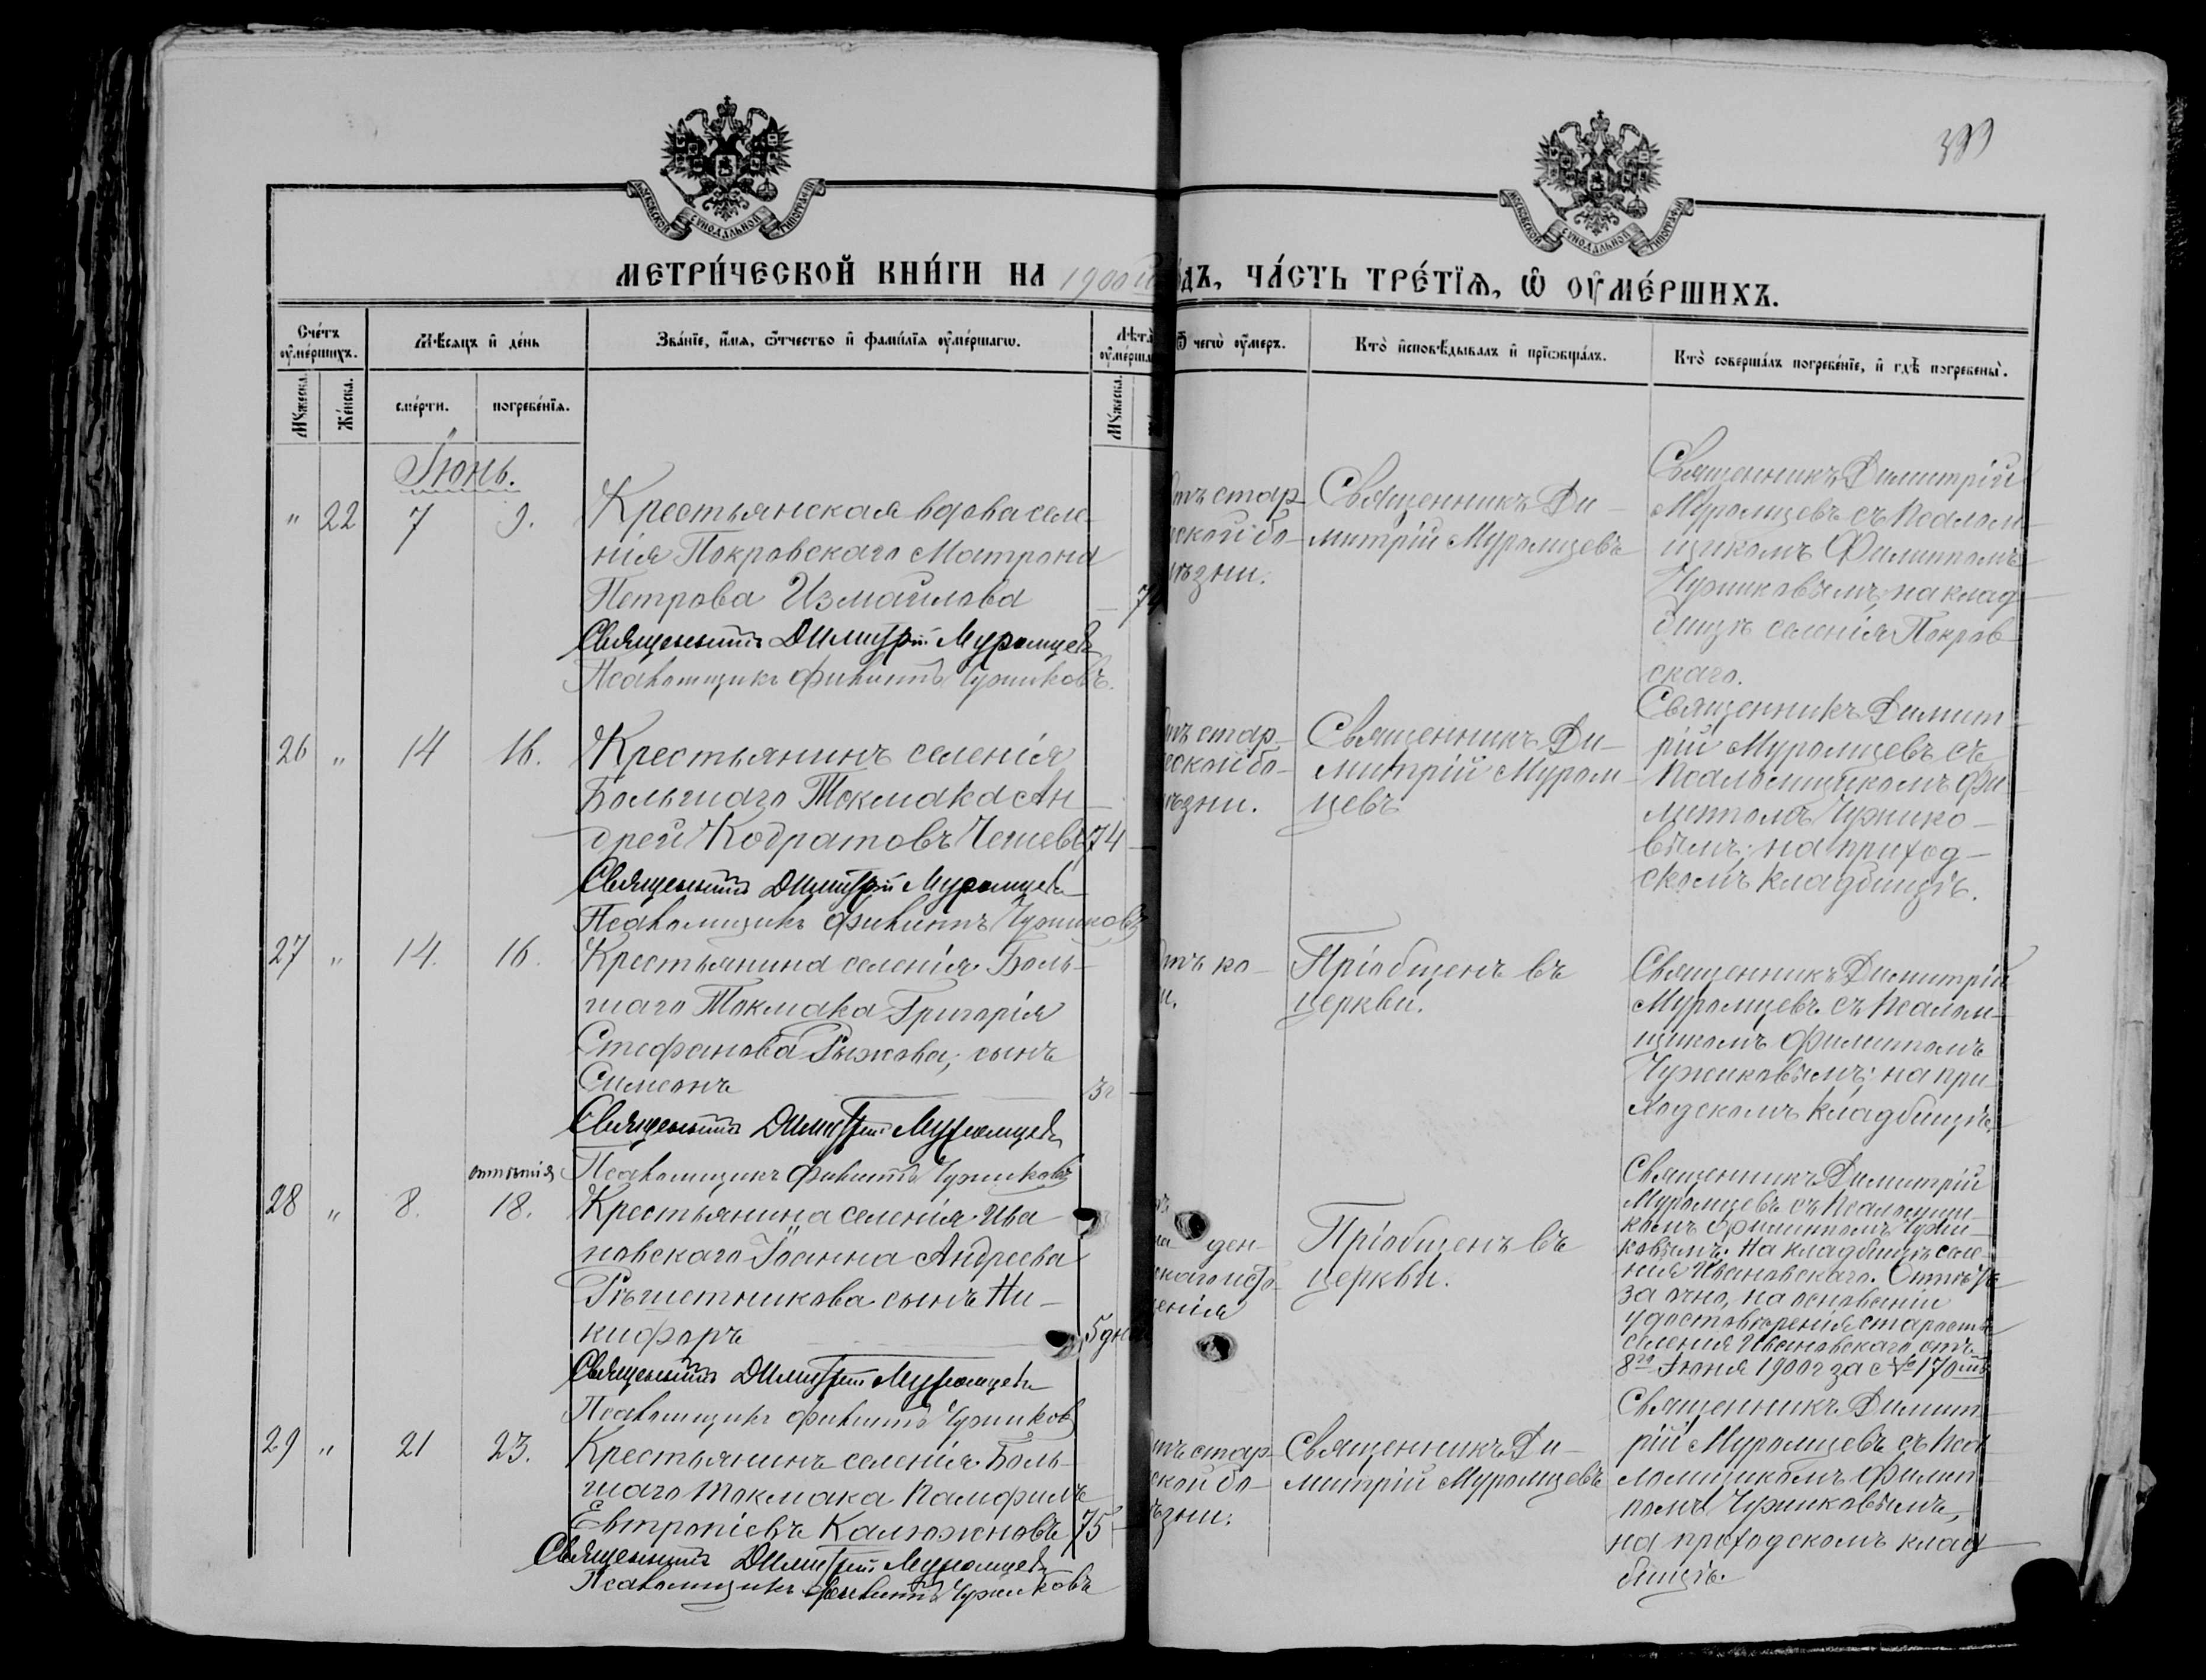 399
МОСКОВСКОЙ СѴНОДАЛЬНОЙ ТИПОГРАФІИ
МОСКОВСКОЙ СѴНОДАЛЬНОЙ ТИПОГРАФІИ
МЕТРИ́ЧЕСКОЙ КНИ́ГИ НА 1900й
ДЪ, ЧА́СТЬ ТРЕ́ТІѦ, Ѿ ОУ҆МЕ́РШИХЪ.
Сче́тъ оу҆ме́ршихъ.
Мꙋжеска.
Же́нска.
Мѣ́сѧцъ и҆ де́нь
сме́рти.
погребе́нїѧ.
Зва́нїе, и҆́мѧ, ѻ҆́тчество и҆ фами́лїѧ оу҆ме́ршагѡ.
Лѣ́та оу҆ме́рша
Мꙋжеска.
Ѿ чегѡ̀ оу҆́меръ.
Кто̀ и҆сповѣ́дывалъ и҆ прїѡбща́лъ.
Кто̀ соверша́лъ погребе́нїе, и҆ гдѣ̀ погребены̀.
Іюнь.
" 22 7 9.
Крестьянская вдова селе-
нія Покровскаго Матрона
Петрова Измаилова
Священникъ Димитрій Муромцевъ
Псаломщикъ Филиппъ Чужиковъ.
отъ стар-
ческой бо-
лѣзни.
Священникъ Ди-
митрій Муромцевъ
Священникъ Димитрій
Муромцевъ съ псалом-
щикомъ Филиппомъ
Чужиковымъ; на клад-
бищѣ селенія Покров-
скаго.
26 " 14 16.
Крестьянинъ селенія
Большаго Токмака Ан-
дрей Кодратовъ 74
Священникъ Димитрій Муромцевъ
Псаломщикъ Филиппъ Чужиковъ
отъ стар-
ческой бо-
лѣзни.
Священникъ Ди-
митрій Муром-
цевъ
Священникъ Димит-
рій Муромцевъ съ
псаломщикомъ Фи-
липпомъ Чужико-
вымъ; на приход-
скомъ кладбищѣ.
27 " 14. 16.
Крестьянина селенія Боль-
шаго Токмака Григорія
Стефанова Рыжкова, сынъ
Симеонъ 3г
Священникъ Димитрій Муромцевъ
Псаломщикъ Филиппъ Чужиковъ
отъ ко-
и.
Пріобщенъ въ
церкви.
Священникъ Димитрій
Муромцевъ съ псалом-
щикомъ Филиппомъ
Чужиковымъ; на при-
ходскомъ кладбищѣ.
отпѣтія
28 " 8. 18.
Крестьянина селенія Ива-
новскаго Іоанна Андреева
Рѣшетникова сынъ Ни-
кифоръ 5 дн
Священникъ Димитрій Муромцевъ
Псаломщикъ Филиппъ Чужиковъ
ден-
скаго
енія
Пріобщенъ въ
церкви.
Священникъ Димитрій
Муромцевъ съ псаломщи-
комъ Филиппомъ Чужи-
ковымъ. На кладбищѣ селе-
нія Ивановскаго. Отпѣтъ
заочно, на основаніи
удостовѣренія старосты
селенія Ивановскаго отъ
8го Іюня 1900г за № 170мъ
29 " 21 23.
Крестьянинъ селенія Боль-
шаго Токмака Памфилъ
Евтропіевъ Калюжновъ 75
Священникъ Димитрій Муромцевъ
Псаломщикъ Филиппъ Чужиковъ
отъ стар-
ческой бо-
лѣзни.
Священникъ Ди-
митрій Муромцевъ
Священникъ Димит-
рій Муромцевъ съ пса-
ломщикомъ Филип-
помъ Чужиковымъ,
на приходскомъ клад-
бищѣ.